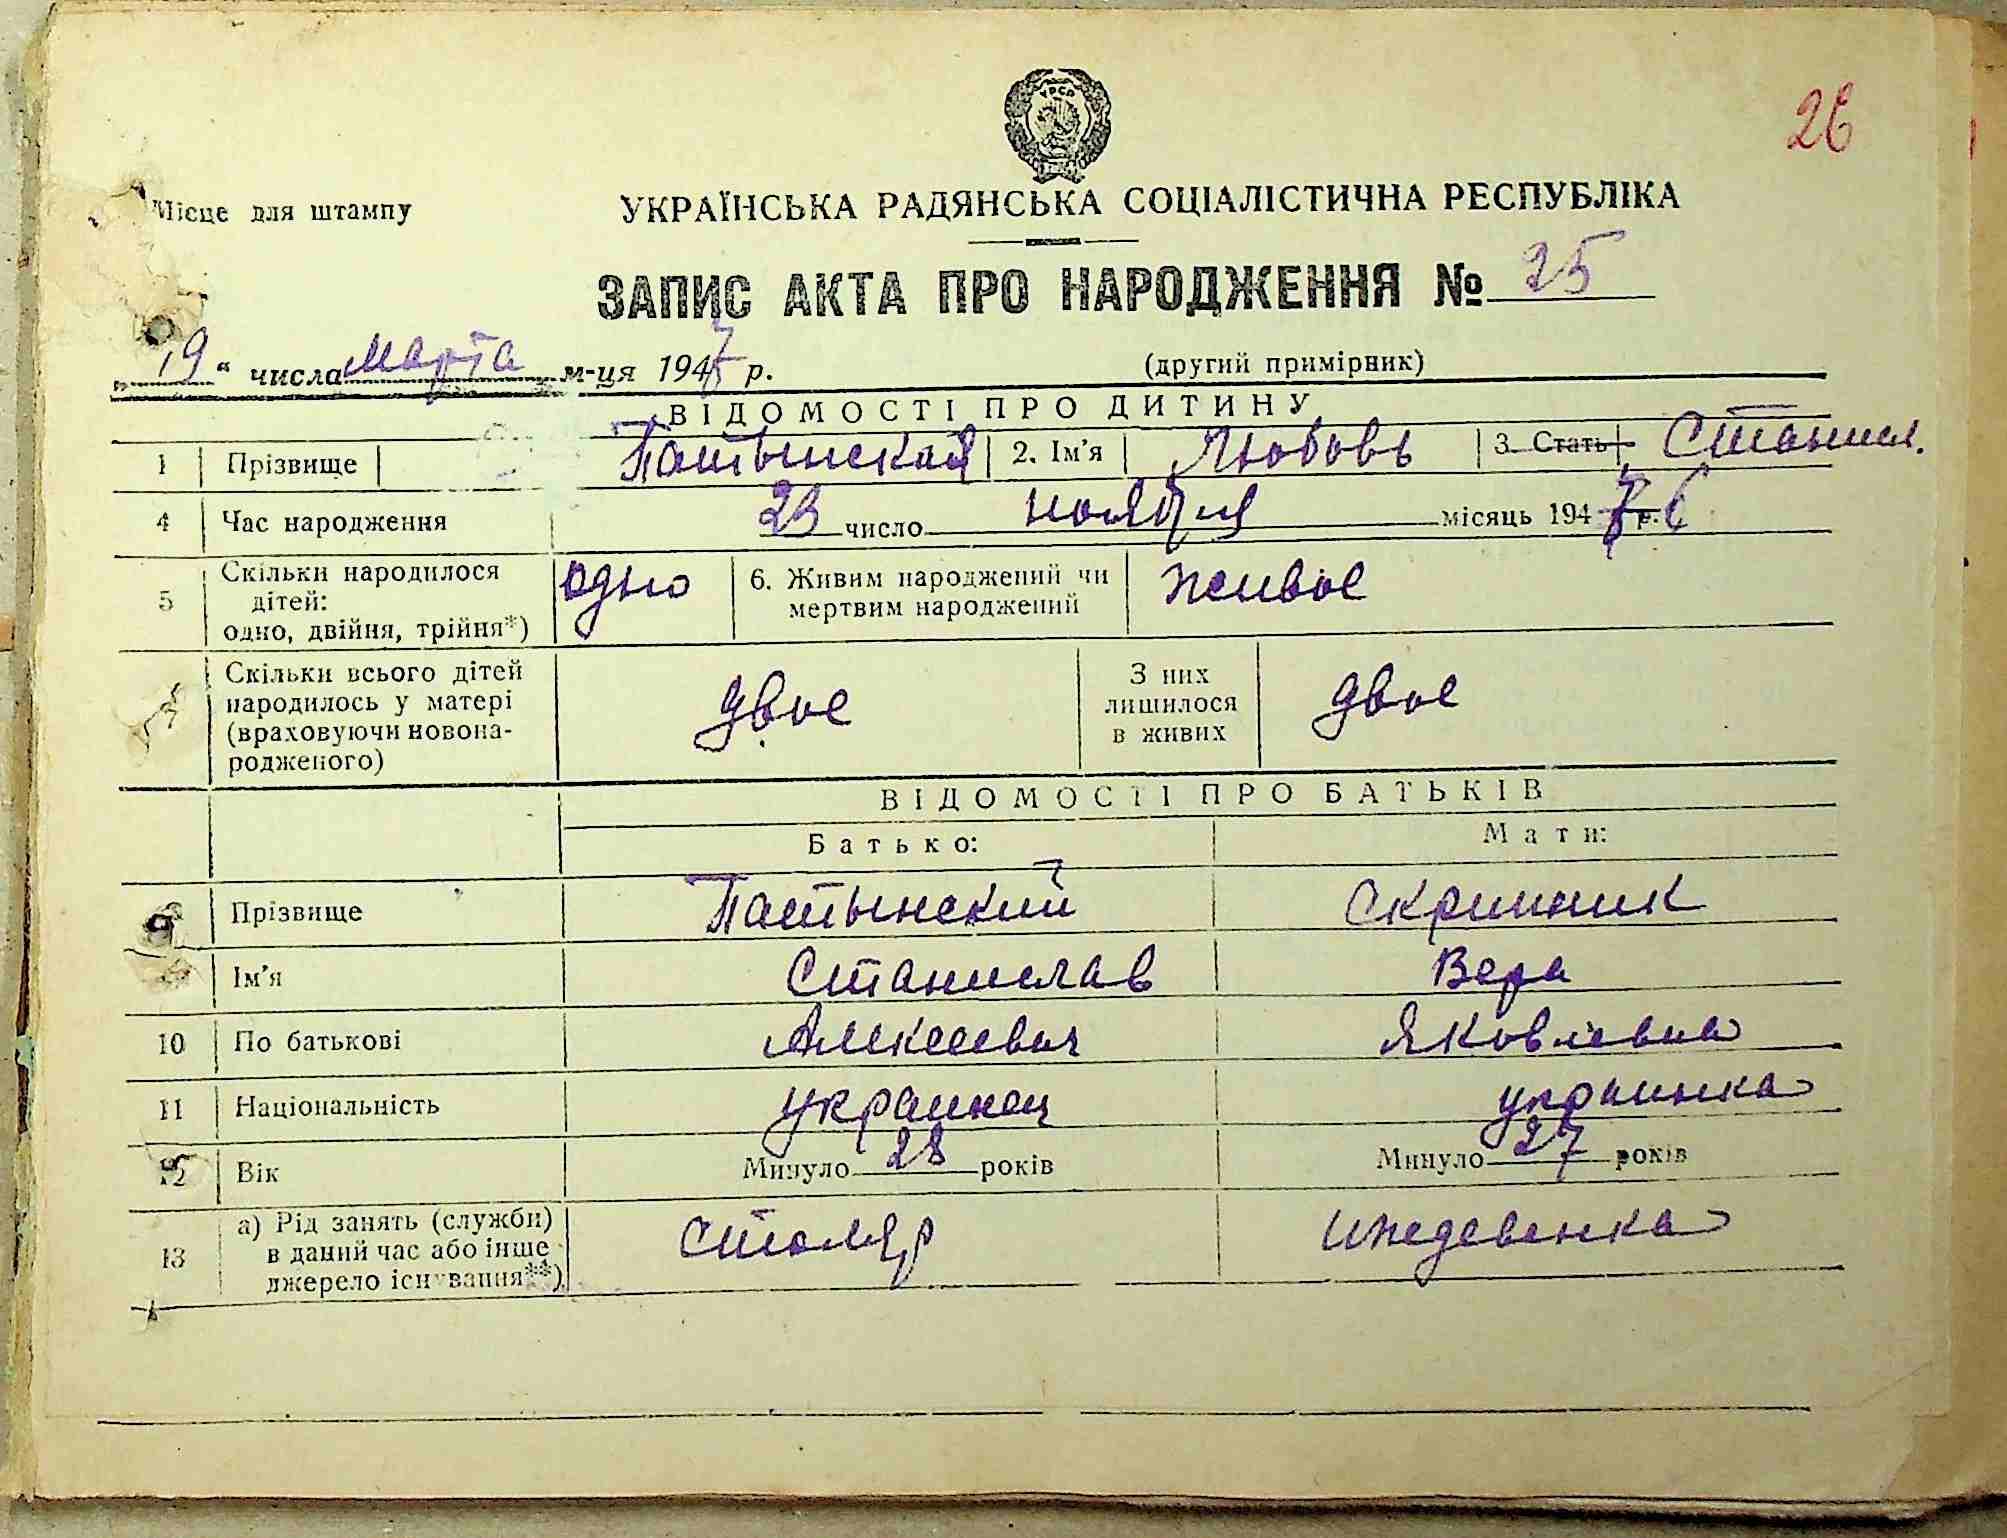 26
УРСР
Місце для штампу
УКРАЇНСЬКА РАДЯНСЬКА СОЦІАЛІСТИЧНА РЕСПУБЛІКА
ЗАПИС АКТА ПРО НАРОДЖЕННЯ № 25
„19“ числа Марта м-ця 1947 р. (другий примірник)
ВІДОМОСТІ ПРО ДИТИНУ
1 Прізвище Пастынская 2. Ім'я Любовь 3. Стать Станисл.
4 Час народження 23 число ноября місяць 194 6
5 Скільки народилося дітей: одно, двійня, трійня*) одно 6. Живим народжений чи мертвим народжений живое
Скільки всього дітей народилось у матері (враховуючи новонародженого) двое З них лишилося в живих двое
ВІДОМОСТІ ПРО БАТЬКІВ
Батько: Мати:
Прізвище Пастынский Скрипник
Ім'я Станислав Вера
10 По батькові Алексеевич Яковлевна
11 Національність украинец украинка
12 Вік Минуло 28 років Минуло 27 років
13 а) Рід занять (служби) в даний час або інше джерело існування**) столяр иждевенка